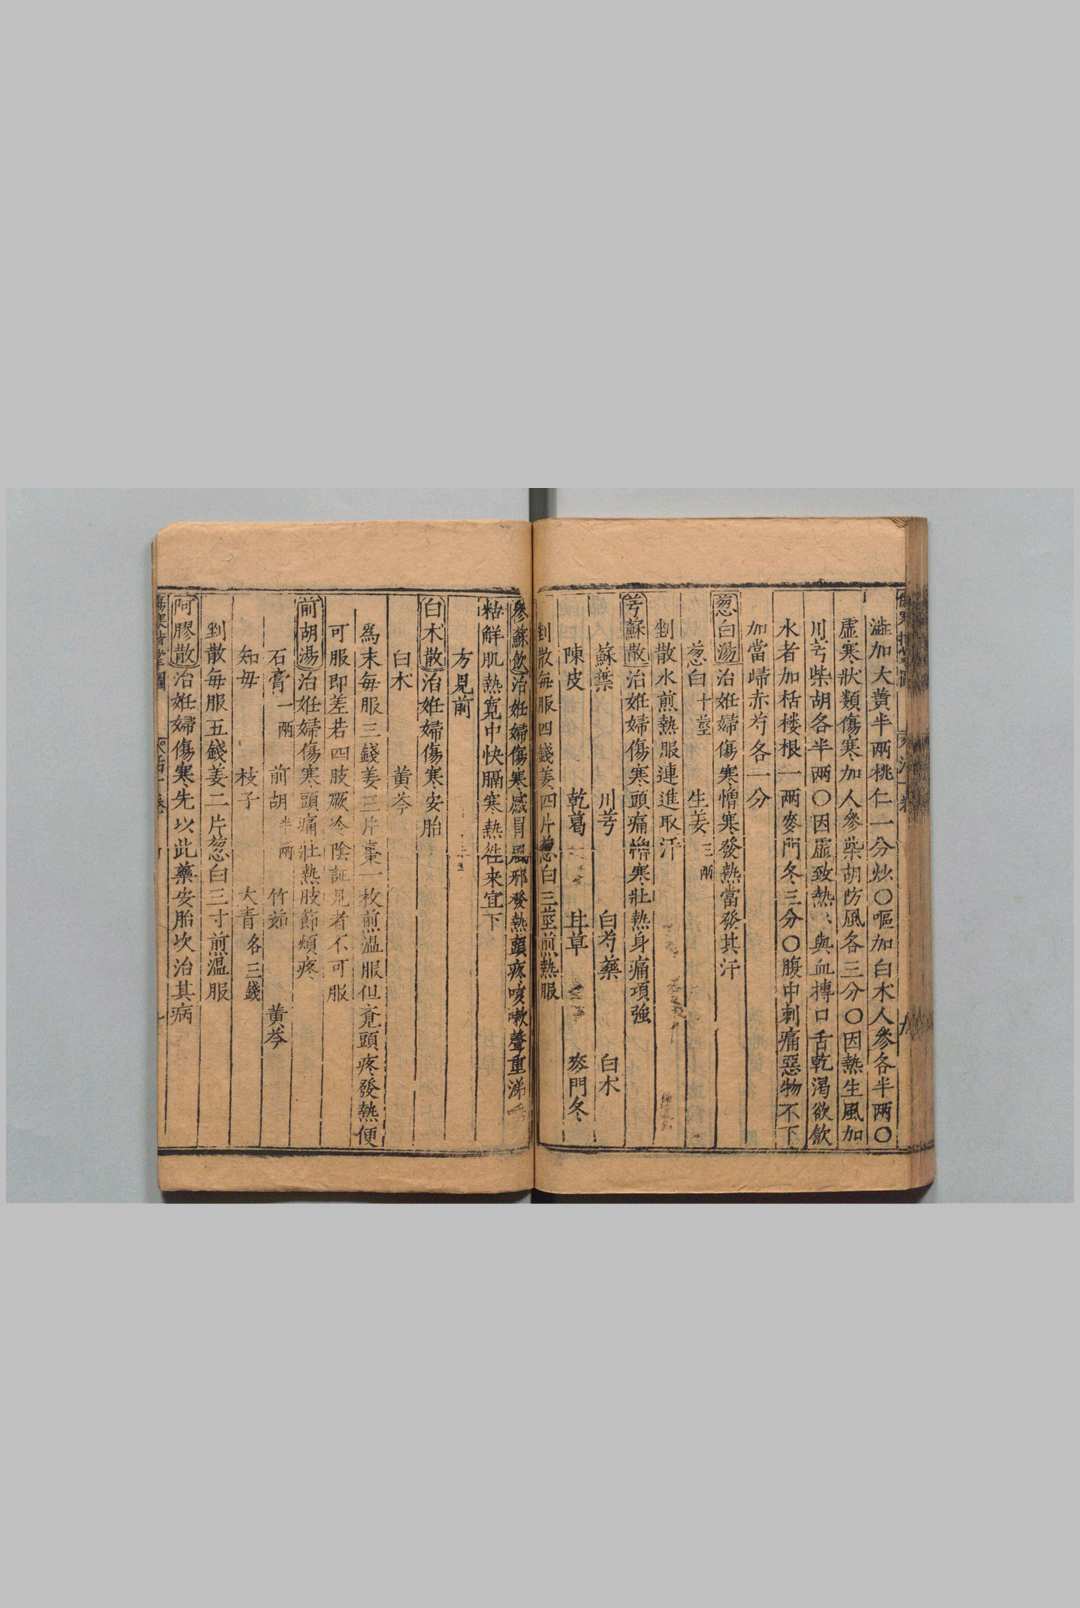 澁加大黃半兩桃仁一分炒〇嘔加白术人參各半兩〇
虛寒狀類傷寒加人參柴胡防風各三分〇因熱生風加
川芎柴胡各半兩〇因虛致熱與血搏口舌乾渴欲飲
水者加栝楼根一兩麥門冬三分〇腹中刺痛惡物不下
加當歸赤芍各一分
葱白湯治妊婦傷寒憎寒發熱當發其汗
葱白十莖 生姜三兩
剉散水煎熱服連進取汗
芎蘇散治妊婦傷寒頭痛憎寒壯熱身痛項強
蘇葉 川芎 白芍藥 白术
陳皮 乾葛 甘草 麥門冬
剉散每服四錢姜四片葱白三莖煎熱服
參蘇飲治妊婦傷寒感冒風邪發熱頭疼咳嗽聲重涕
粘解肌熱寬中快膈寒熱徃来宜下
方見前
白术散治妊婦傷寒安胎
白术 黃芩
爲末每服三錢姜三片棗一枚煎溫服但覺頭疼發熱便
可服即差若四肢厥冷陰証見者不可服
前胡湯治妊婦傷寒頭痛壯熱肢節煩疼
石膏一兩 前胡半兩 竹茹 黃芩
知母 枝子 大青各三錢
剉散每服五錢姜二片葱白三寸煎溫服
阿膠散治妊婦傷寒先以此藥安胎次治其病